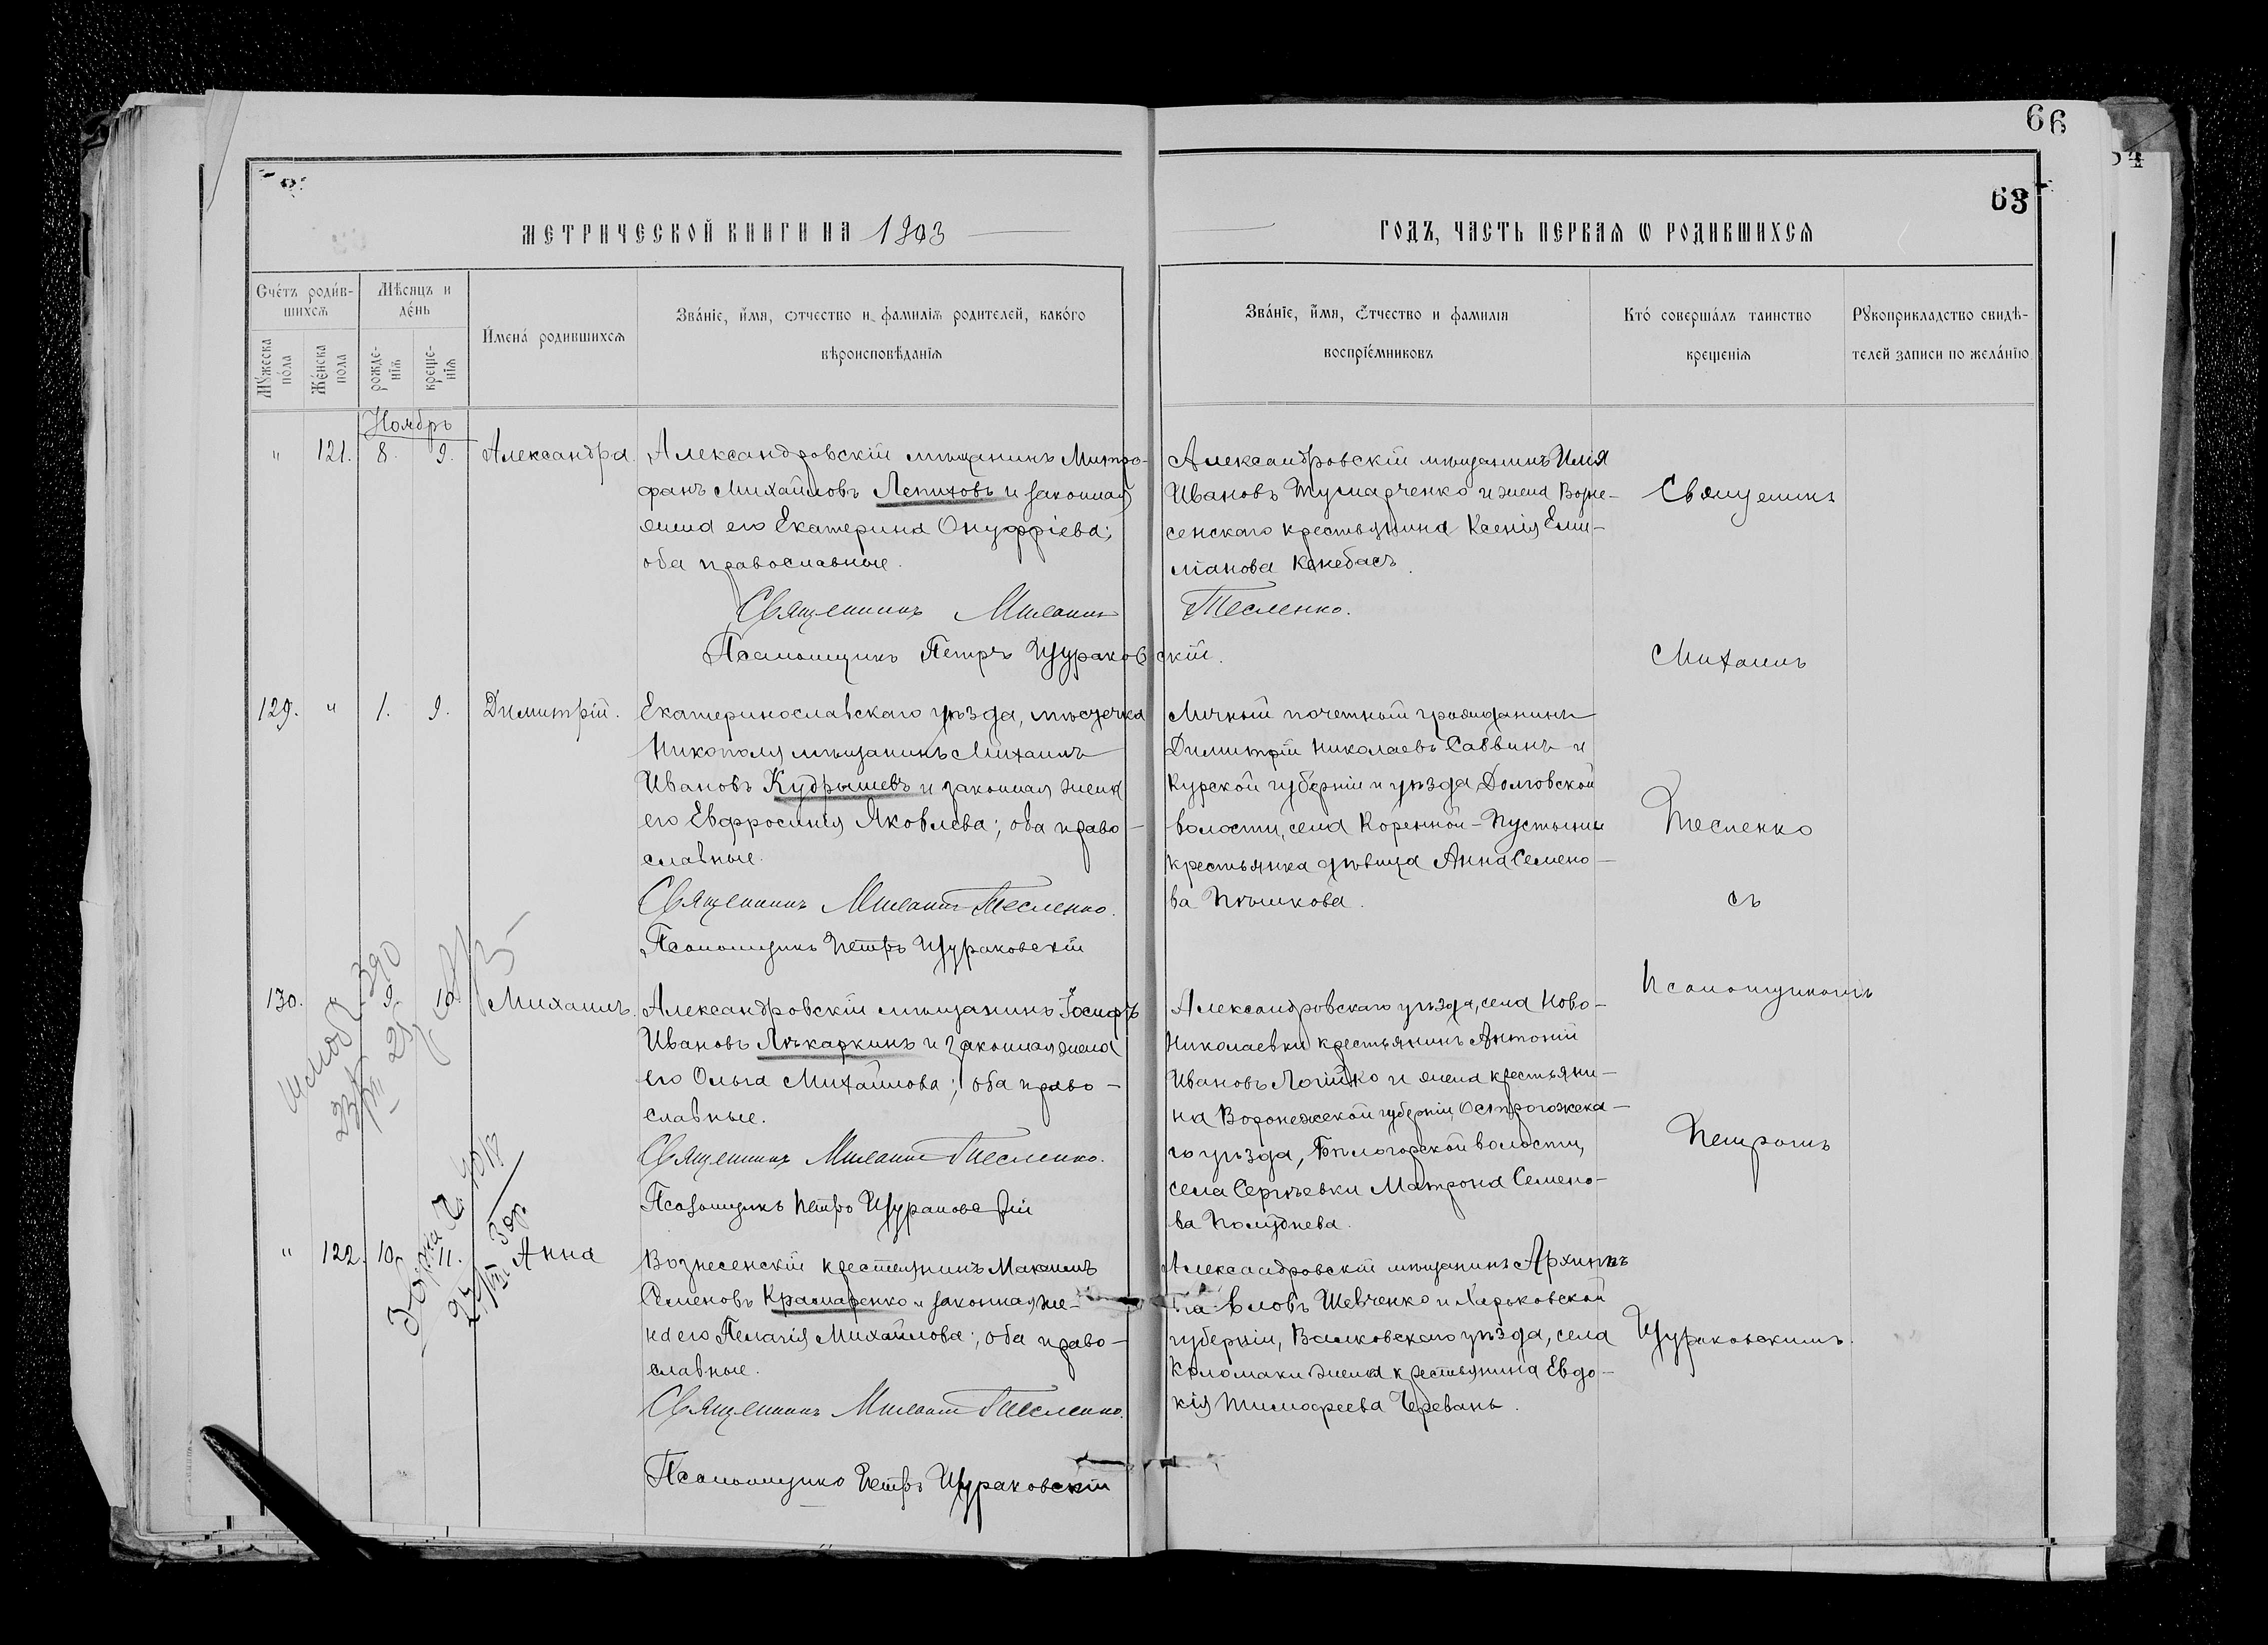 66
63
МЕТРИЧЕСКОЙ КНИГИ НА 1903 ГОДЪ, ЧАСТЬ ПЕРВАЯ Ѡ РОДИВШИХСЯ
Счетъ родив-
шихся
Мѣсяцъ и
день
Мужеска
пола
Женска
пола
рожде-
нія
креще-
нія
Имена родившихся
Званіе, имя, отчество и фамилія родителей, какого
вѣроисповѣданія
Званіе, имя, отчество и фамилія
воспріемниковъ
Кто совершалъ таинство
крещенія
Рукоприкладство свидѣ-
телей записи по желанію
Ноябрь
" 121. 8. 9. Александра.
Александровскій мѣщанинъ Митро-
фанъ Михайловъ Лепиховъ и законная
жена его Екатерина Онуфріева;
оба православные.
Священникъ Михаилъ Тесленко.
Псаломщикъ Петръ Щураковскій.
Александровскій мѣщанинъ Илія
Ивановъ Тушарченко и жена Возне-
сенскаго крестьянина Ксенія Еми-
ліанова Канебасъ.
129. " 1. 9. Димитрій.
Екатеринославскаго уѣзда, мѣстечка
Никополя мѣщанинъ Михаилъ
Ивановъ Кудрышевъ и законная жена
его Евфросинія Яковлева; оба право-
славные.
Священникъ Михаилъ Тесленко.
Псаломщикъ Петръ Щураковскій
Личный почетный гражданинъ
Димитрій Николаевъ Саввинъ и
Курской губерніи и уѣзда, Долговской
волости, села Коренной-Пустыни
крестьянка дѣвица Анна Семено-
ва Пѣшкова.
130. 9. 10. Михаилъ.
Александровскій мѣщанинъ Іосифъ
Ивановъ Лѣкаркинъ и законная жена
его Ольга Михайлова; оба право-
славные.
Священникъ Михаилъ Тесленко.
Псаломщикъ Петръ Щураковскій
Александровскаго уѣзда, села Ново-
Николаевки крестьянинъ Антоній
Ивановъ Логійко и жена крестьяни-
на Воронежской губерніи, Острогожска-
го уѣзда, Бѣлогорской волости,
села Сергѣевки Матрона Семено-
ва Полуднева.
" 122. 10. 11. Анна
Вознесенскій крестьянинъ Максимъ
Семеновъ Крамаренко и законная же-
на его Пелагія Михайлова; оба право-
славные.
Священникъ Михаилъ Тесленко.
Псаломщикъ Петръ Щураковскій
Александровскій мѣщанинъ Архипъ
Павловъ Шевченко и Харьковской
губерніи, Валковскаго уѣзда, села
Коломаки жена крестьянина Евдо-
кія Тимофеева Черевань.
Священникъ
Михаилъ
Тесленко
съ
псаломщикомъ
Петромъ
Щураковскимъ.